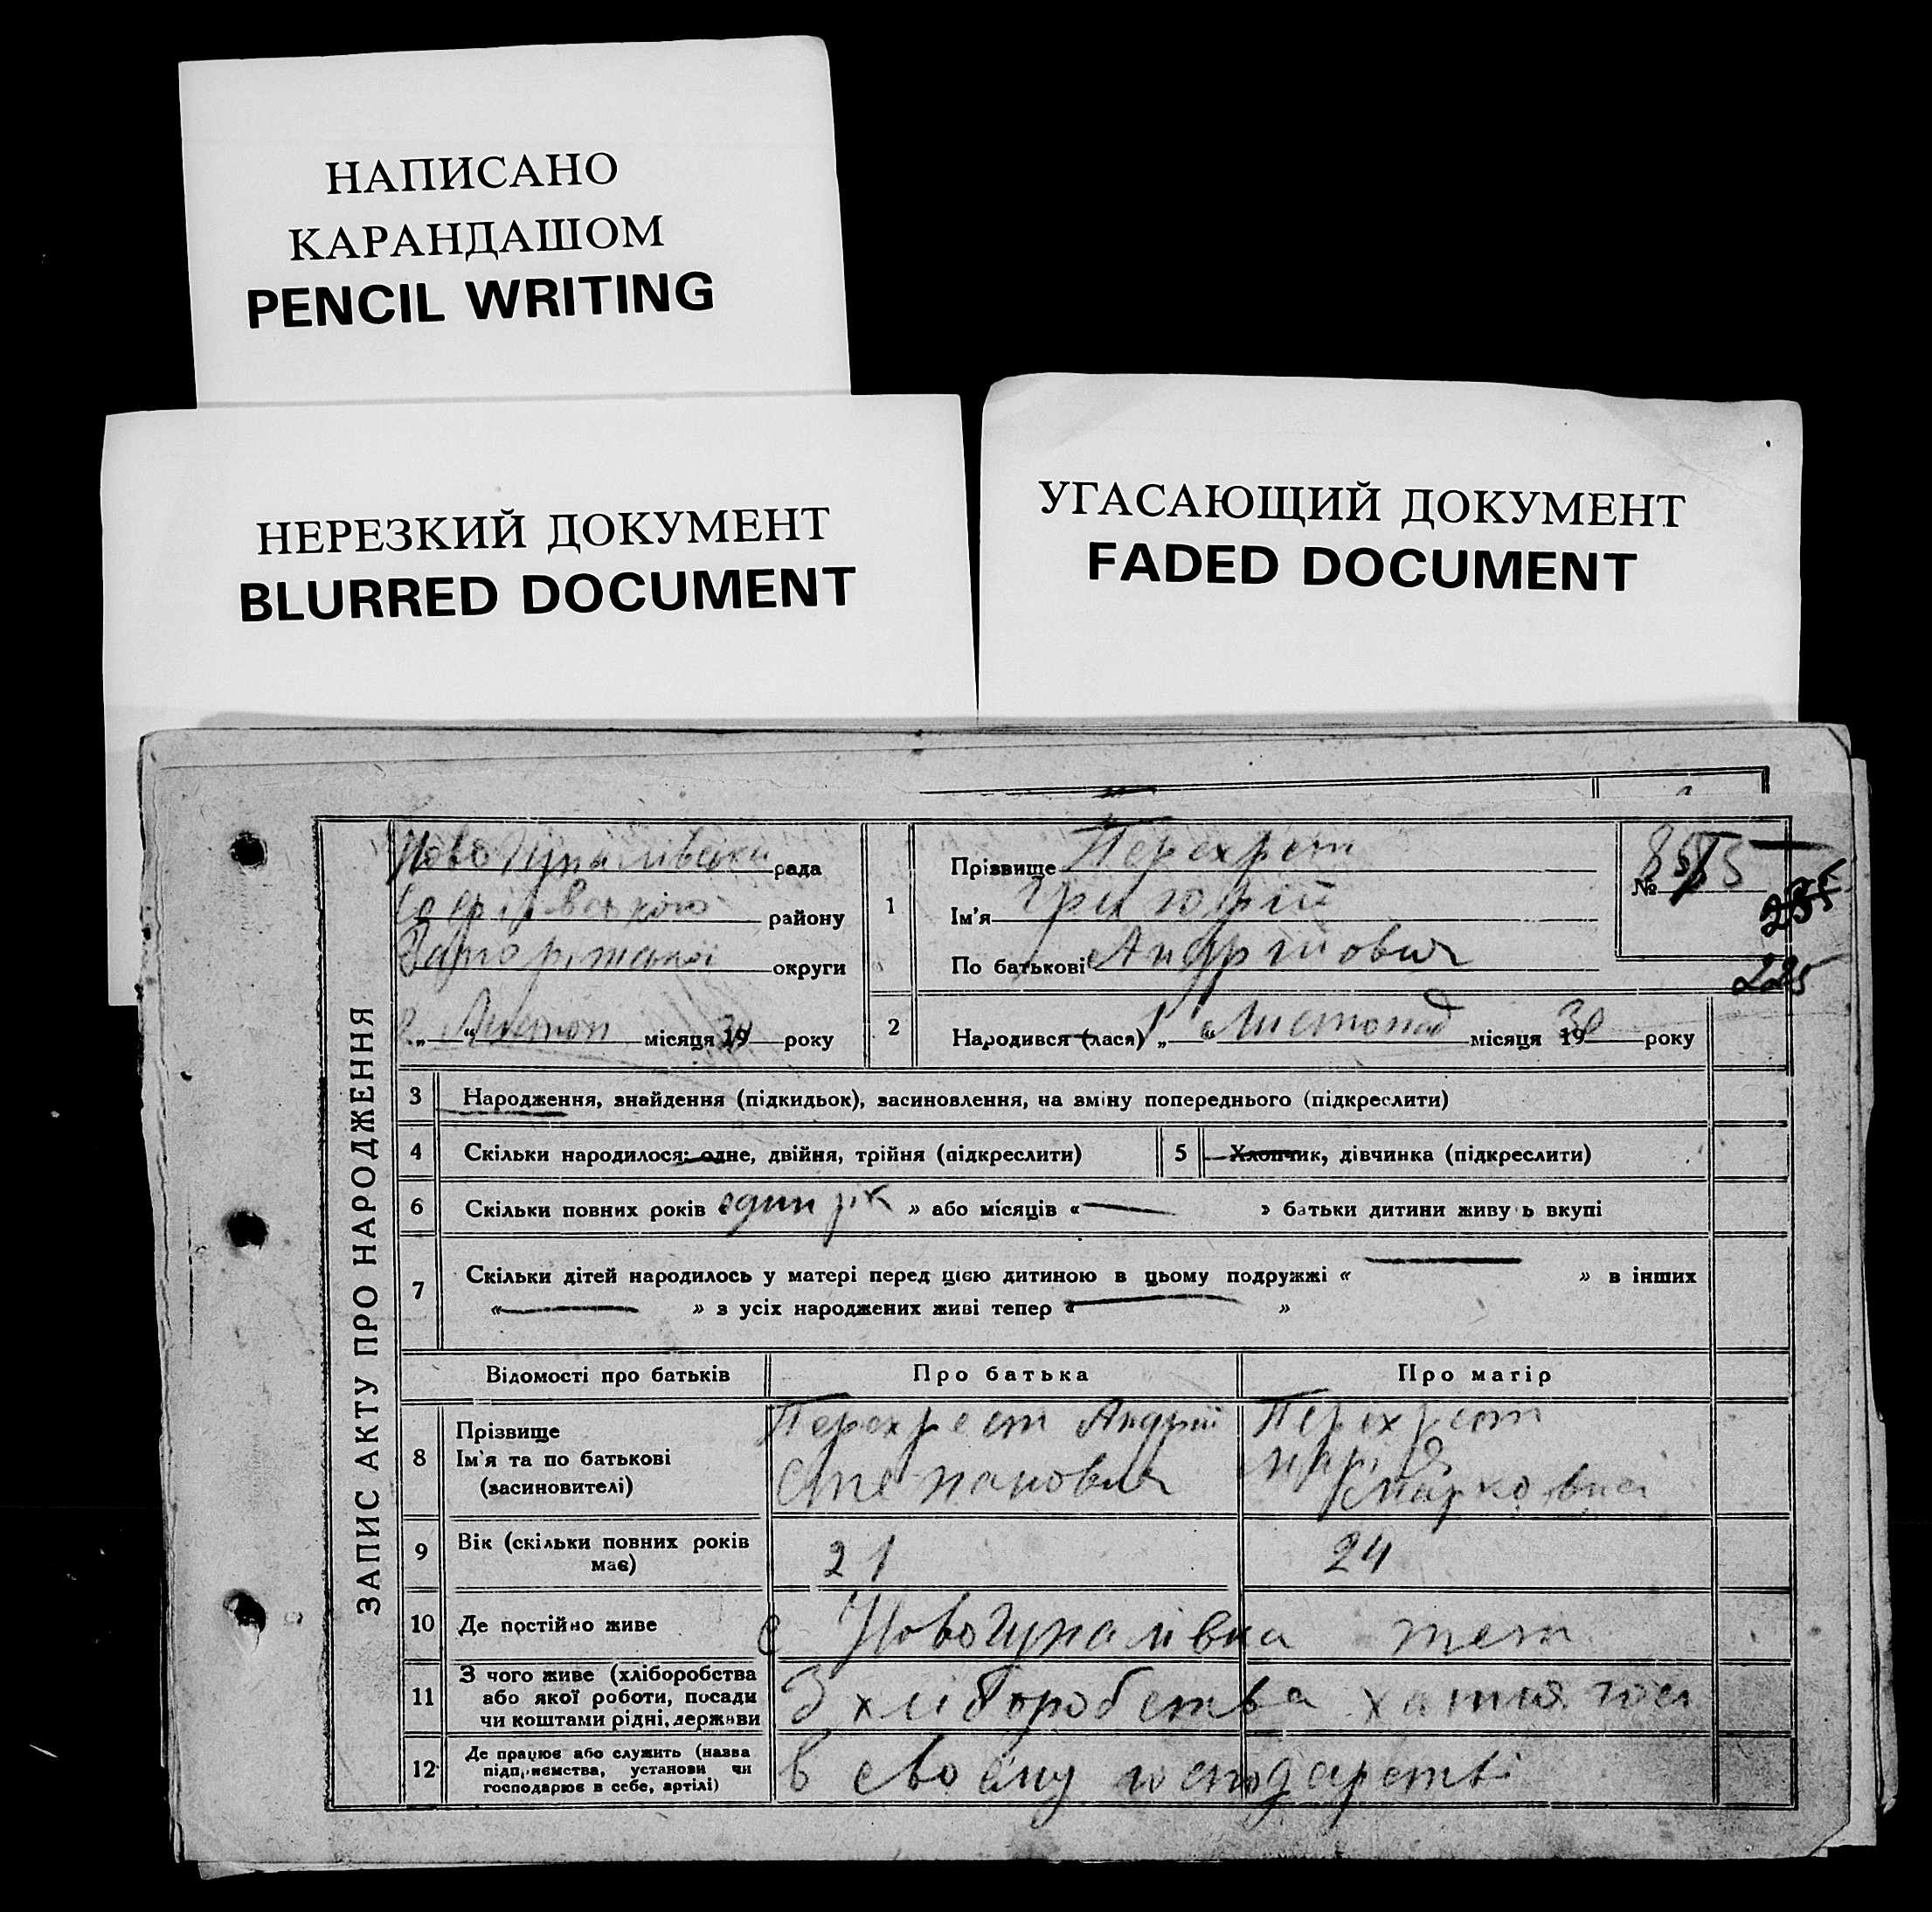 НАПИСАНО
КАРАНДАШОМ
PENCIL WRITING
НЕРЕЗКИЙ ДОКУМЕНТ
BLURRED DOCUMENT
УГАСАЮЩИЙ ДОКУМЕНТ
FADED DOCUMENT
ЗАПИС АКТУ ПРО НАРОДЖЕННЯ
рада
району
округи
місяця 19 року
1
Прізвище Перехрест
Ім'я Григорій
По батькові Андрійович
№
225
2 Народився (лася) „ “ Листопад місяця 1930 року
3 Народження, знайдення (підкидьок), засиновлення, на зміну попереднього (підкреслити)
4 Скільки народилося: одне, двійня, трійня (підкреслити)
5 Хлопчик, дівчинка (підкреслити)
6 Скільки повних років « один рік » або місяців « — » батьки дитини живуть вкупі
7 Скільки дітей народилось у матері перед цією дитиною в цьому подружжі « — » в інших
« — » з усіх народжених живі тепер « — »
Відомості про батьків Про батька Про матір
8 Прізвище
Ім'я та по батькові
(засиновителі)
Перехрест Андрій
Степанович
Перехрест
Марія
Марковна
9 Вік (скільки повних років
має)
21 24
10 Де постійно живе с Новогупалівка теж
11 З чого живе (хліборобства
або якої роботи, посади
чи коштами рідні, держави
З хліборобства хатня
12 Де працює або служить (назва
підприємства, установи чи
господарює в себе, артілі)
в своєму господарстві